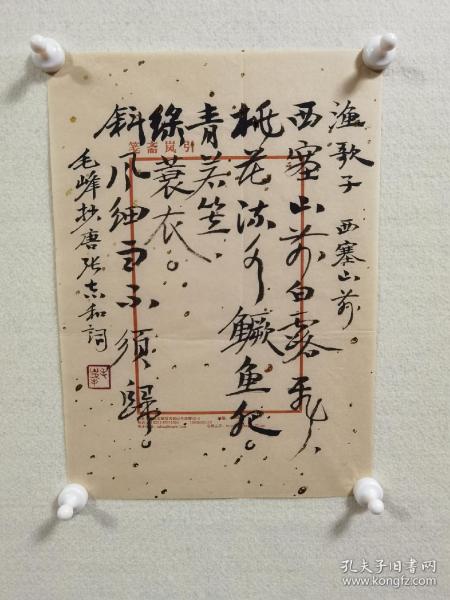 渔歌子 西塞山前
西塞山前白露飞、
桃花流水鳜鱼肥。
青若笠、
綠蓑衣。
斜风细雨不须歸。
毛峰抄唐张志和詞
引岚斋笺
孔夫子旧书网
www.kongfz.com